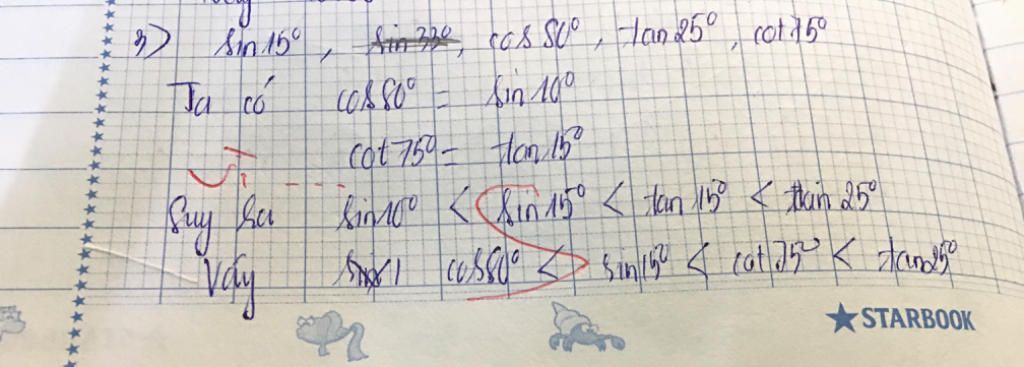 3) sin 15°, sin 33°, cos 80°, tan 25°, cot 75°
Ta có cos 80° = sin 10°
cot 75° = tan 15°
Suy ra sin 10° < sin 15° < tan 15° < tan 25°
Vậy cos 80° < sin 15° < cot 75° < tan 25°
STARBOOK